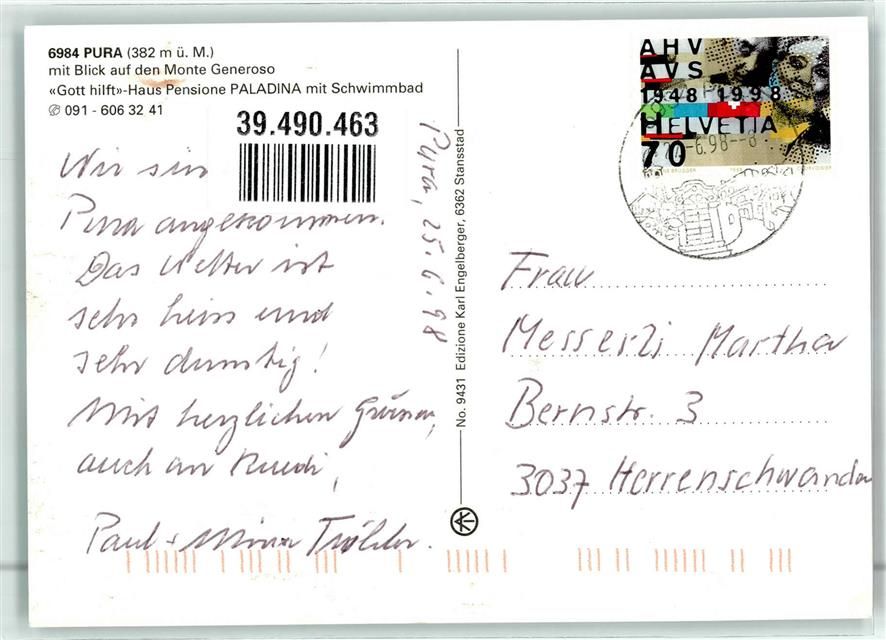 6984 PURA (382 m ü. M.)
mit Blick auf den Monte Generoso
«Gott hilft»-Haus Pensione PALADINA mit Schwimmbad
✆ 091 - 606 32 41
39.490.463
Wir sin
Pura angekommen.
Das Wetter ist
sehr heiss und
sehr dunstig!
Mit herzlichen Grüssen,
auch an Ruedi,
Paul + Mina Tröhler.
Pura, 25.6.98
No. 9431 Edizione Karl Engelberger, 6362 Stansstad
AHV
AVS
1948 1998
HELVETIA
70
6.98--8
Frau
Messerli Martha
Bernstr. 3
3037 Herrenschwanden